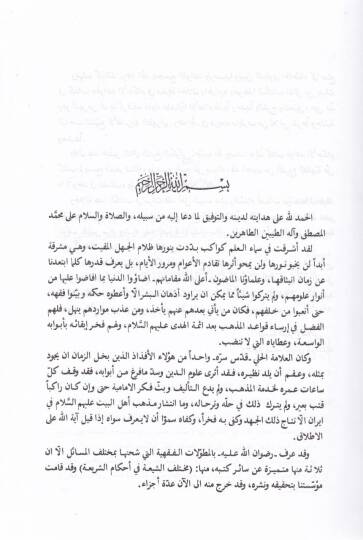 بسم الله الرحمن الرحيم
الحمد لله على هدايته لدينه والتوفيق لما دعا إليه من سبيله، والصلاة والسلام على محمّد
المصطفى وآله الطيبين الطاهرين.
لقد أشرقت في سماء العلم كواكب بدّدت بنورها ظلام الجهل المقيت، وهي مشرقة
أبداً لن يخبو نورها ولن يمحو أثرها تقادم الأعوام ومرور الأيام، بل يعرف قدرها كلما ابتعدنا
عن زمان انبثاقها، وعلماؤنا الماضون ـ أعلى الله مقاماتهم ـ أضاؤوا الدنيا بما أفاضوا عليها من
أنوار علومهم، ولم يتركوا شيئاً مما يمكن ان يراود أذهان البشر الّا وأعطوه حكمه وبيّنوا فقهه،
حتى أتعبوا من خلفهم، فكان من يأتي بعدهم عنهم يأخذ، ومن عذب مواردهم ينهل، فلهم
الفضل في إرساء قواعد المذهب بعد ائمة الهدى عليهم السّلام، وهم فخر إيقافه بأبوابه
الواسعة، وعطاياه التي لا تنضب.
وكان العلامة الحلي ـ قدّس سرّه ـ واحداً من هؤلاء الأفذاذ الذين بخل الزمان ان يجود
بمثله، وعقم أن يلد نظيره، فقد أثرى علوم الدين وسدّ مافرغ من أبوابه، فقد وقف كلّ
ساعات عمره لخدمة المذهب، ولم يدع التأليف وبثّ فكر الامامية حتى وإن كان راكباً
قتب بعير، ولم يترك ذلك في حلّه وترحاله، وما انتشار مذهب أهل البيت عليهم السّلام في
ايران الّا نتاج ذلك الجهد وكفى به فخراً، وكفاه سموّاً أن لا يعرف سواه إذا قيل آية الله على
الاطلاق.
وقد عرف ـ رضوان الله عليه ـ بالمطوّلات الفقهية التي شحنها بمختلف المسائل الّا ان
ثلاثة منها متميزة عن سائر كتبه، منها: (مختلف الشيعة في أحكام الشريعة) وقد قامت
مؤسّستنا بتحقيقه ونشره، وقد خرج منه الى الآن عدّة أجزاء.